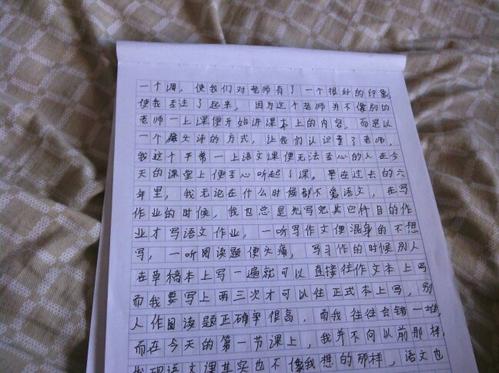 一个词，使我们对老师有了一个很好的印象
使我专注了起来，因为这个老师并不像别的
老师一上课便开始讲课本上的内容，而是以
一个文译的方式，让我们认识了老师，
我这个平常一上语文课便无法专心的人在今
天的课堂上便专心听起了课。要在过去的六
年里，我无论在什么时候都不爱语文，在写
作业的时候，我也总是先写完其它科目的作
业才写语文作业，一听写作文便混身的不想
写，一听阅读题便头痛，写习作的时候别人
在草稿本上写一遍就可以直接往作文本上写
而我要写上两三次才可以往正式本上写，别
人作阅读题正确率很高，而我往往会错一堆
而在今天的第一节课上，我并不向以前那样
发现语文课其实也不像我想的那样，语文也